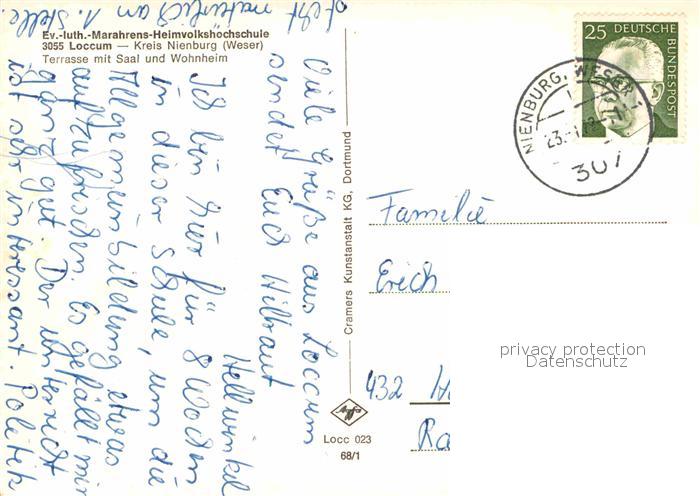 Ev.-luth.-Marahrens-Heimvolkshochschule
3055 Loccum — Kreis Nienburg (Weser)
Terrasse mit Saal und Wohnheim
Viele Grüße aus Loccum
sendet Euch Hiltraut
Hellwinkel
Ich bin hier für 8 Wochen
in dieser Schule, um die
Allgemeinbildung etwas
aufzufrischen. Es gefällt mir
ganz gut. Der Unterricht
ist sehr interessant. Politik
steht natürlich an 1. Stelle.
Cramers Kunstanstalt KG, Dortmund
Agfa
Locc 023
68/1
25 DEUTSCHE
BUNDESPOST
NIENBURG, WESER 1
307
Familie
Erich
432 H
Ra
privacy protection
Datenschutz